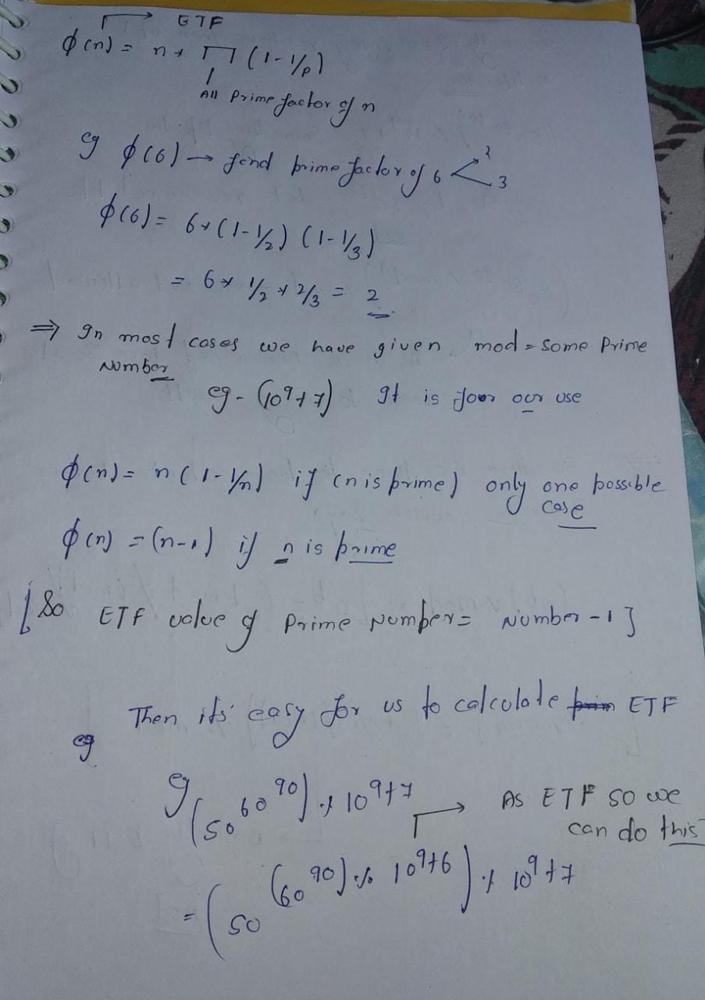 ETF
ϕ(n) = n * ∏ (1 - 1/p)
All Prime factor of n
eg ϕ(6) → find prime factor of 6 < 2
3
ϕ(6) = 6 * (1 - 1/2) (1 - 1/3)
= 6 * 1/2 * 2/3 = 2
⇒ In most cases we have given mod = some Prime
Number
eg - (10^9+7) It is for our use
ϕ(n) = n(1 - 1/n) if (n is prime) only one possible
case
ϕ(n) = (n-1) if n is prime
[So ETF value of Prime Number = Number - 1]
Then its' easy for us to calculate ETF
eg
eg (50^60^90) % 10^9+7
As ETF so we
can do this
= (50^(60^90) % 10^9+6) % 10^9+7